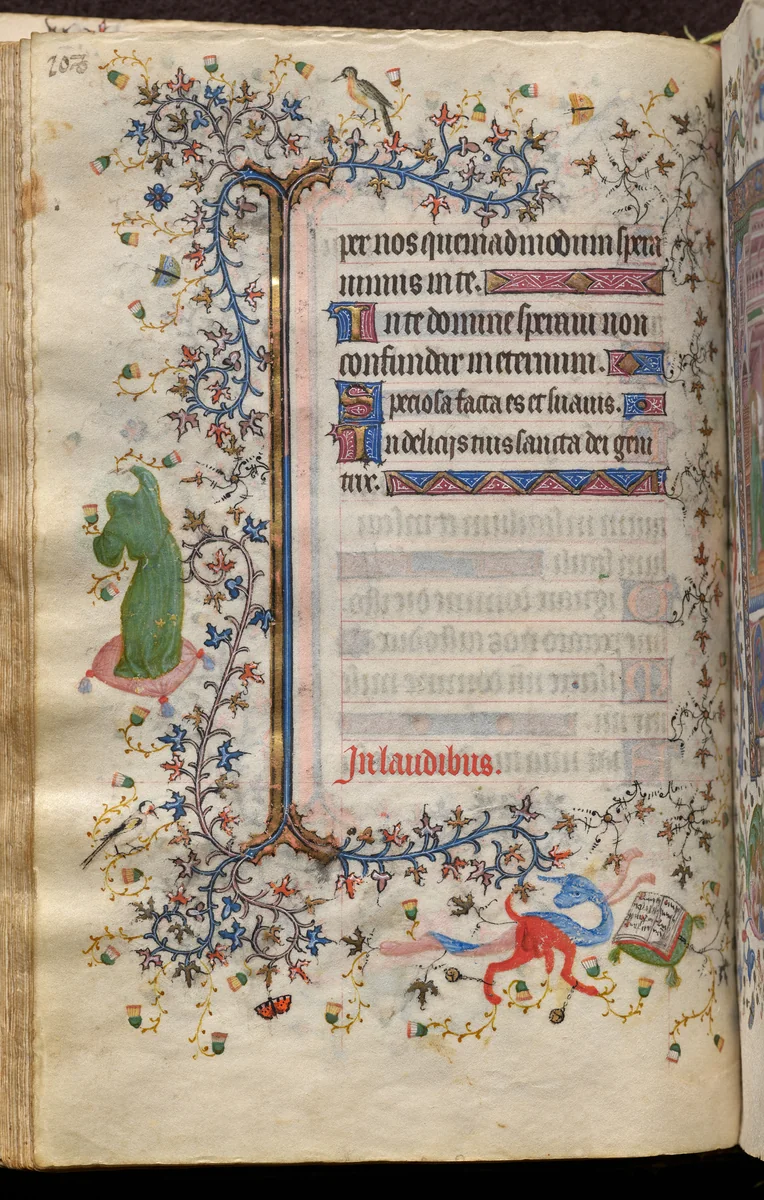 per nos quemadmodum spera
uimus in te.
In te domine speraui non
confundar in eternum.
Speciosa facta es et suauis.
In delicijs tuis sancta dei geni
trix.
In laudibus.